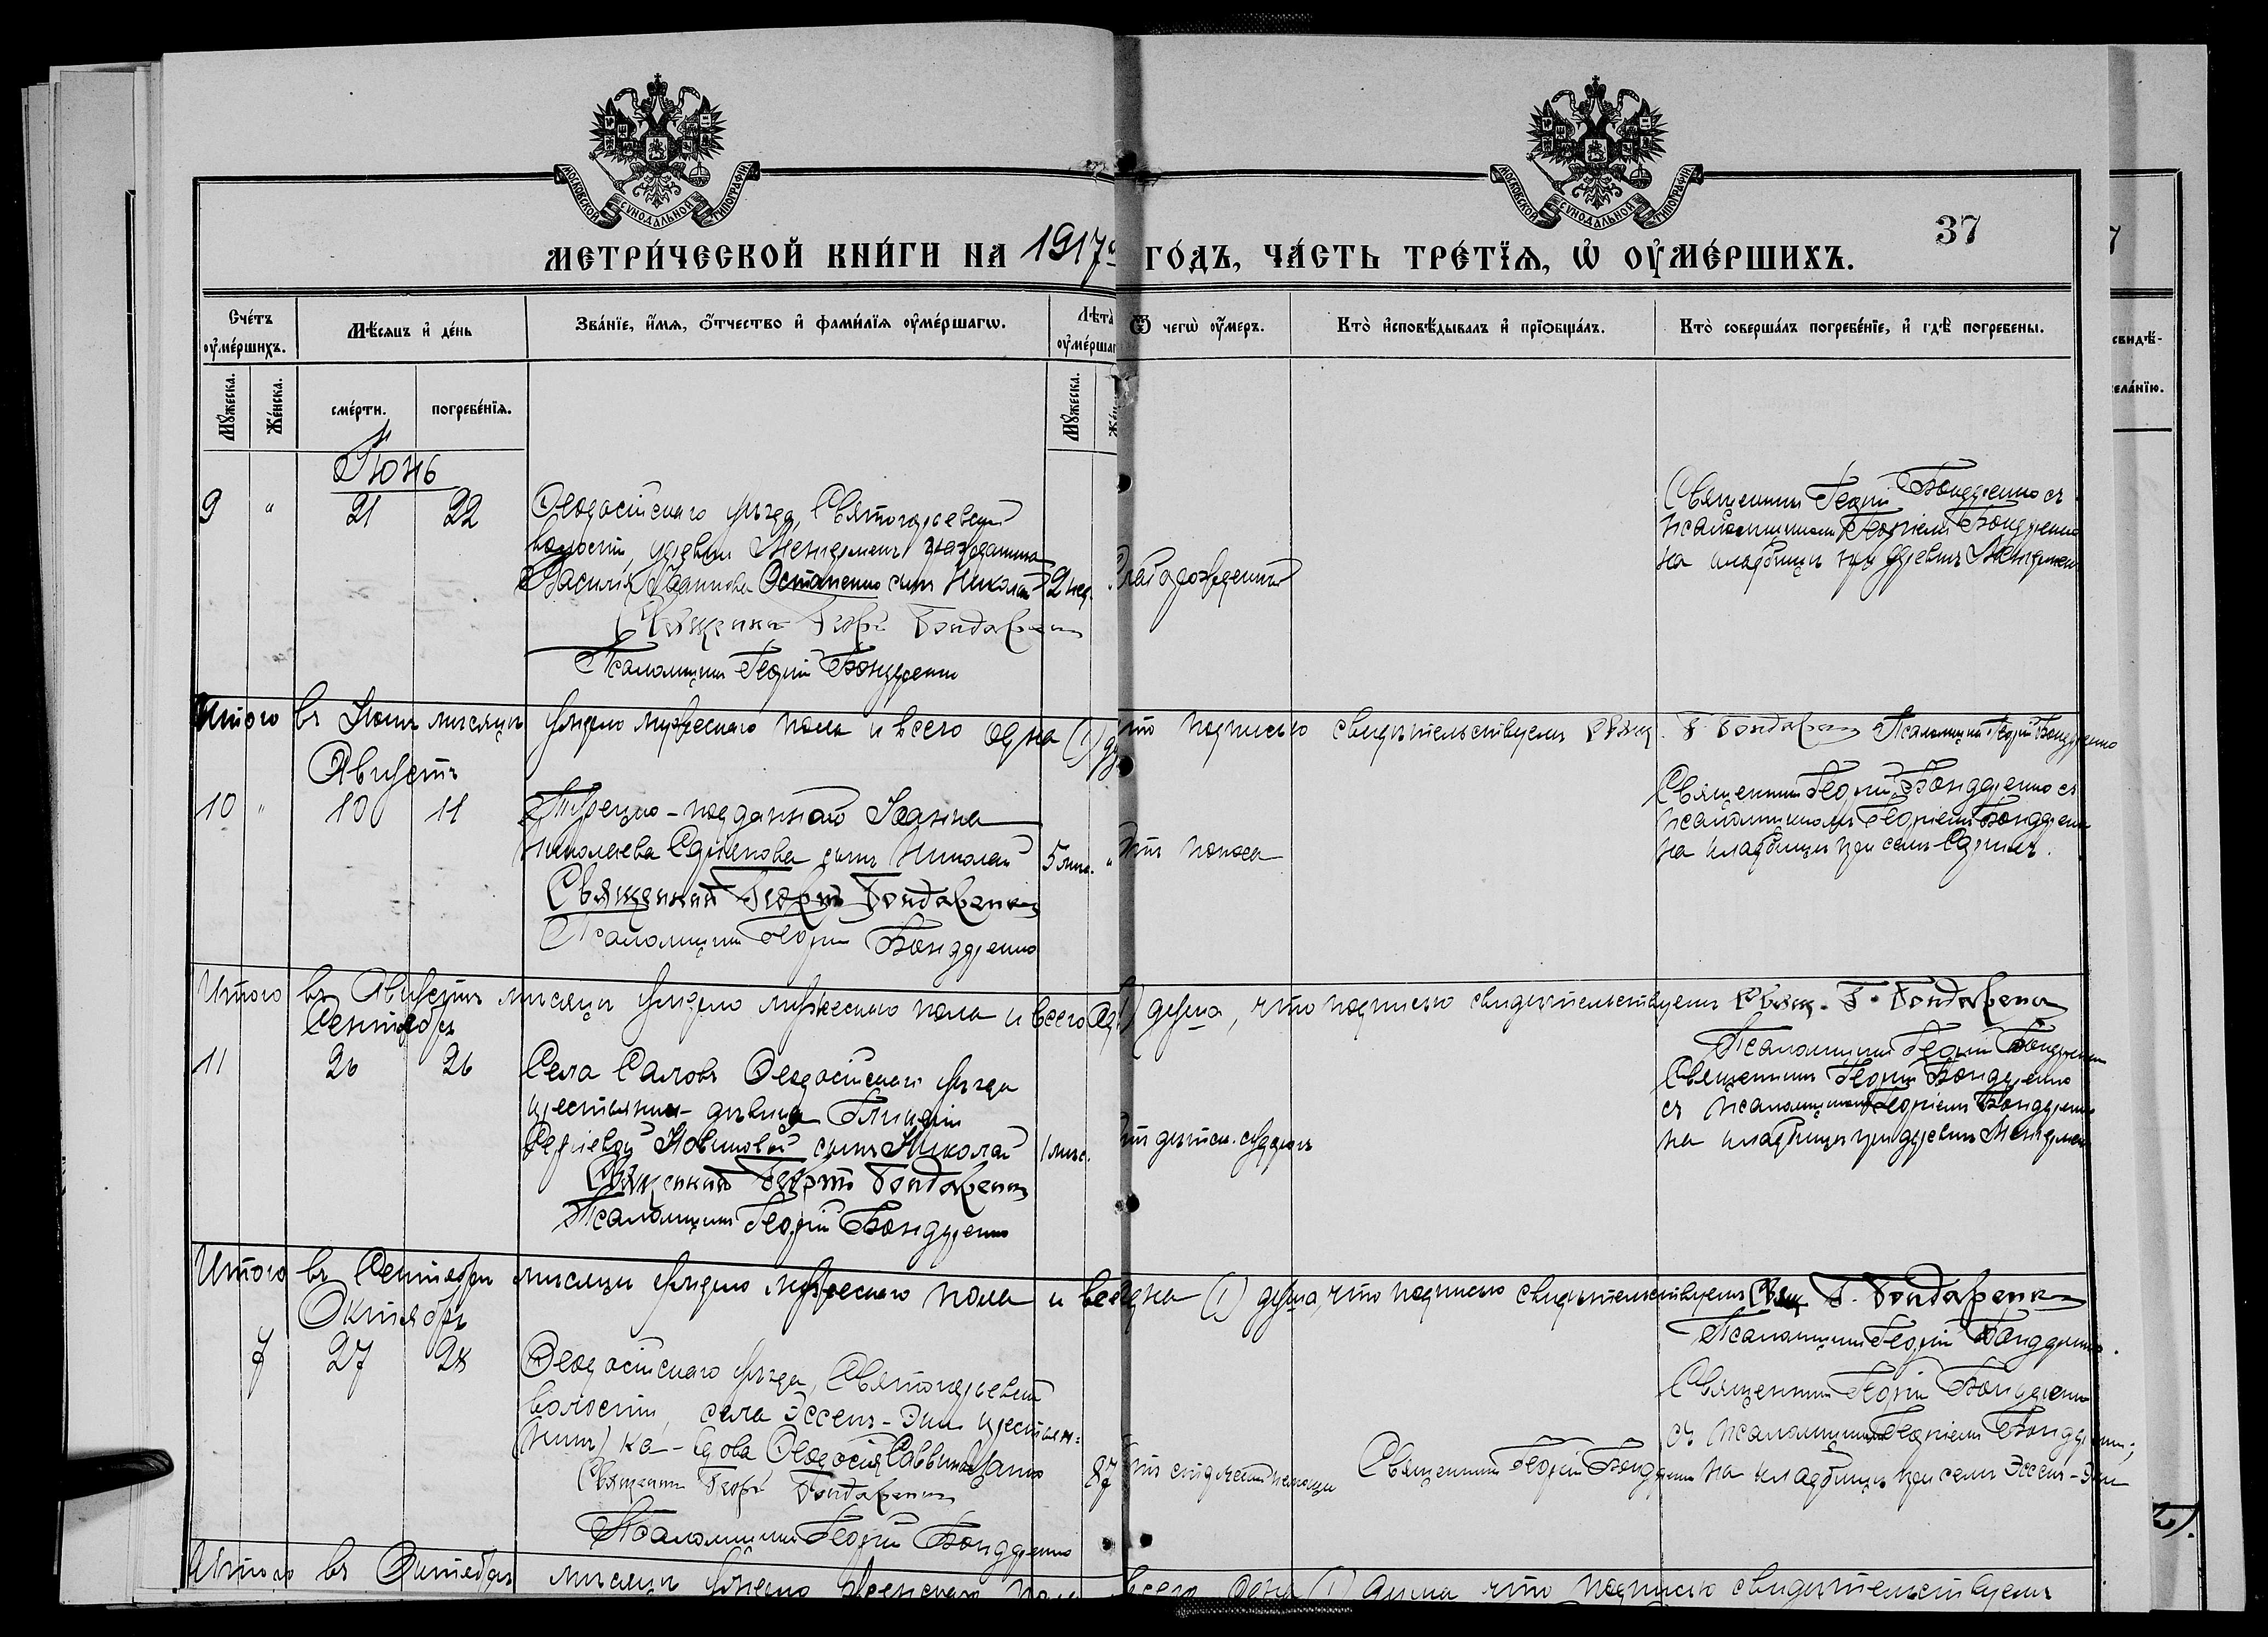 МОСКОВСКОЙ СѴНОДАЛЬНОЙ ТИПОГРАФІИ
МОСКОВСКОЙ СѴНОДАЛЬНОЙ ТИПОГРАФІИ
37
МЕТРИ́ЧЕСКОЙ КНИ́ГИ НА 1917й ГО́ДЪ, ЧА́СТЬ ТРЕ́ТЇѦ, Ѽ ОУ҆МЕ́РШИХЪ.
Сче́тъ оу҆ме́ршихъ.
Мѣ́сяцъ и҆ де́нь
Зва́нїе, и҆́мя, ѻ҆́тчество и҆ фами́лїя оу҆ме́ршагѡ.
Лѣ́та оу҆ме́ршаг
Ѿ чегѡ̀ оу҆́меръ.
Кто̀ и҆сповѣ́дывалъ и҆ прїѡбща́лъ.
Кто̀ соверша́лъ погребе́нїе, и҆ гдѣ̀ погребены.
Мꙋ́жеска.
Же́нска.
сме́рти.
погребе́нїя.
Мꙋ́жеска.
Іюнь
9 " 21 22
Ѳеодосійскаго уѣзда, Святогорьевской
волости, деревни гражданина
Василія Іоаннова Остапенко сынъ Николай
2 нед.
Священникъ Георгій Бондаренко
Псаломщикъ Георгій Бондаренко
Священникъ Георгій Бондаренко съ
псаломщикомъ Георгіемъ Бондаренко
на кладбищѣ при деревнѣ
Итого въ Іюнѣ мѣсяцѣ умерло мужескаго пола и всего одна (1) ду что подписью свидѣтельствуемъ Свящ. Г. Бондаренко Псаломщикъ Георгій Бондаренко
Августъ
10 " 10 11
Турецко-подданнаго Іоанна
Николаева сынъ Николай
5 мѣс. "
Отъ поноса
Священникъ Георгій Бондаренко
Псаломщикъ Георгій Бондаренко
Священникъ Георгій Бондаренко съ
псаломщикомъ Георгіемъ Бондаренко
на кладбищѣ при селѣ
Итого въ Августѣ мѣсяцѣ умерло мужескаго пола и всего од 1) душа, что подписью свидѣтельствуемъ Свящ. Г. Бондаренко
Псаломщикъ Георгій Бондаренко
Сентябрь
11 26 26
Села Саловъ Ѳеодосійскаго уѣзда
крестьянки-дѣвицы
Сергіевой Новиковой сынъ Николай
1 мѣс.
Священникъ Георгій Бондаренко
Псаломщикъ Георгій Бондаренко
Священникъ Георгій Бондаренко
съ псаломщикомъ Георгіемъ Бондаренко
на кладбищѣ при деревнѣ
Итого въ Сентябрѣ мѣсяцѣ умерло мужескаго пола и все одна (1) душа, что подписью свидѣтельствуемъ Свящ. Г. Бондаренко
Псаломщикъ Георгій Бондаренко.
Октябрь
7 27 28
Ѳеодосійскаго уѣзда, Святогорьевской
волости, села Эссенъ-Эки крестьян=
ка-вдова Ѳеодосія Саввина
87
Священникъ Георгій Бондаренко
Псаломщикъ Георгій Бондаренко
Священникъ Георгій Бондаренко
Священникъ Георгій Бондаренко
съ псаломщикомъ Георгіемъ Бондаренко;
на кладбищѣ при селѣ Эссенъ-Эки
Итого въ Октябрѣ мѣсяцѣ умерло женскаго пола всего одна (1) душа что подписью свидѣтельствуемъ